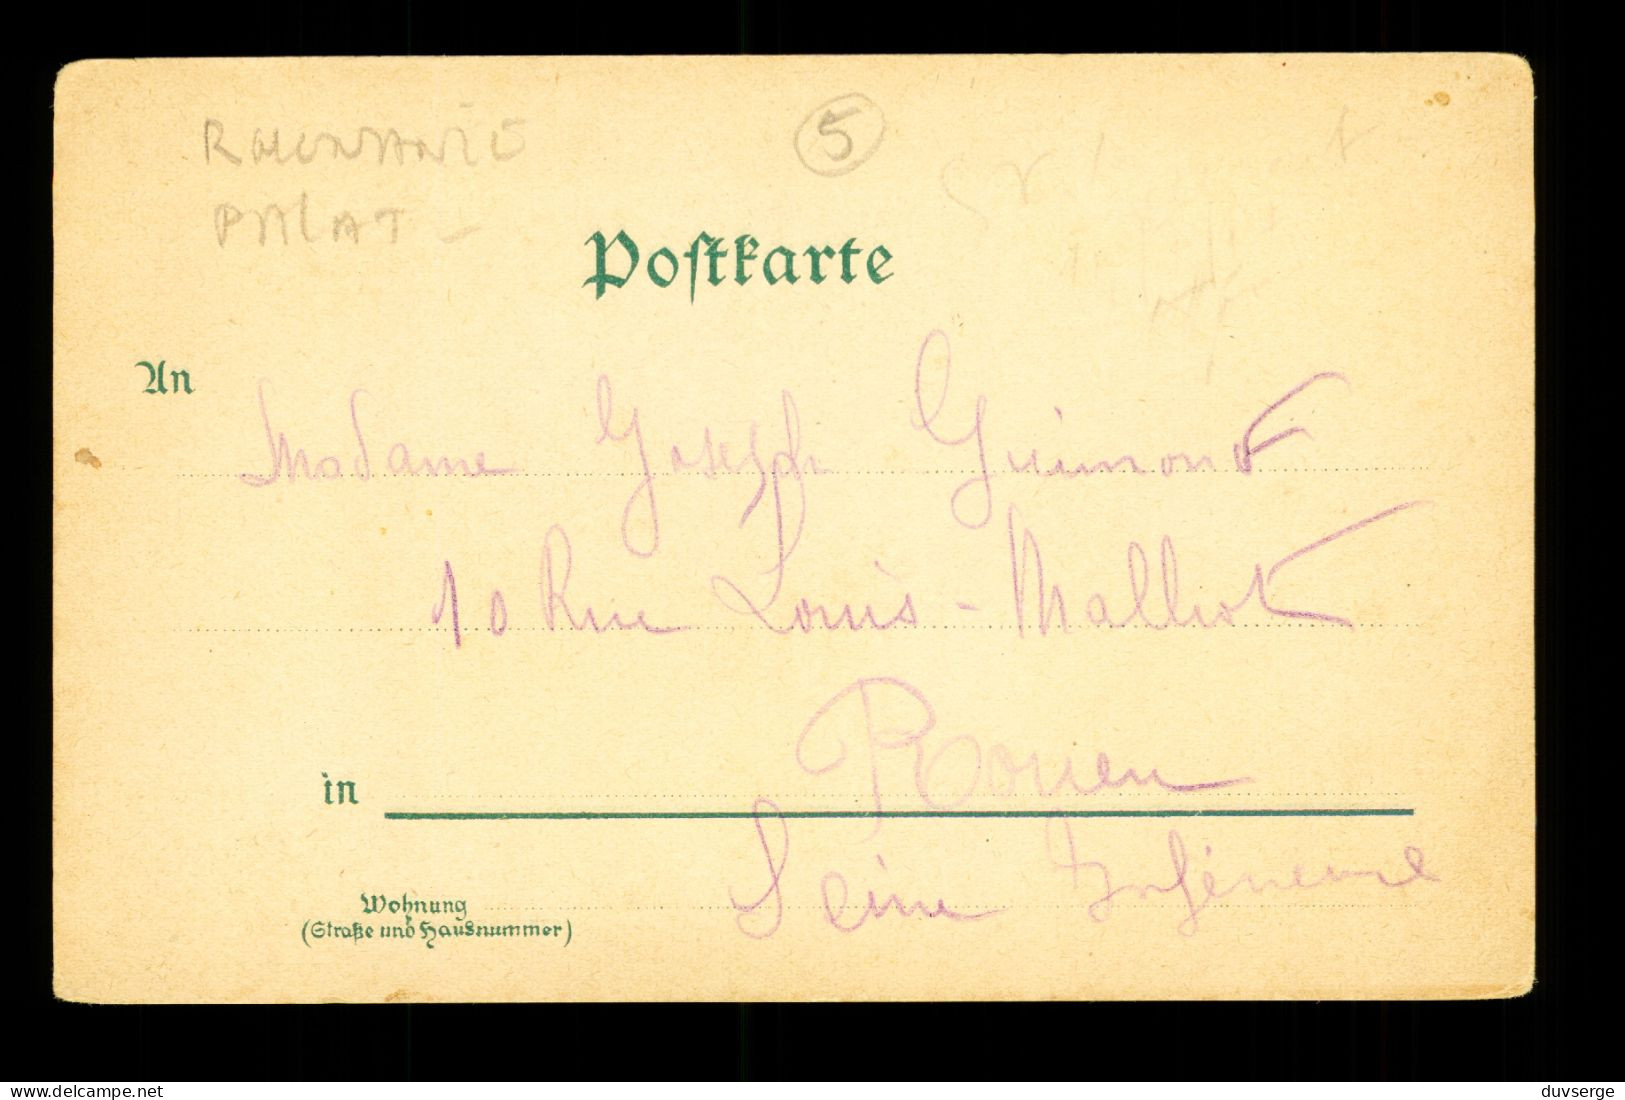 RHENANIE
PALAT-
5
Postkarte
An
Madame Joseph Guimont
10 Rue Louis-Malliot
in Rouen
Seine Inférieure
Wohnung
(Straße und Hausnummer)
delcampe.net
duvserge